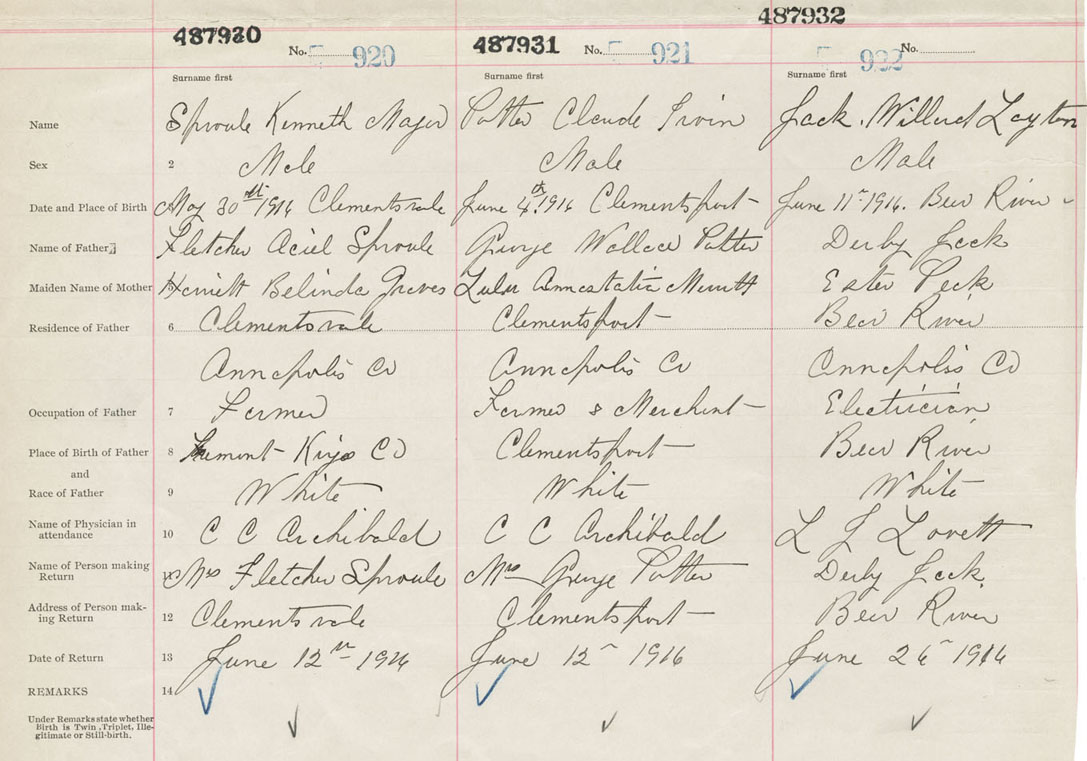 487930 487931 487932
No. 920 No. 921 No. 922
Surname first Surname first Surname first
Name Sproule Kenneth Major Potter Claude Irvin Jack. Willard Layton
Sex 2 Male Male Male
Date and Place of Birth May 30th 1916 Clementsvale June 4th. 1916 Clementsport June 11 1916. Bear River
Name of Father Fletcher Aciel Sproule George Wallace Potter Derby Jack
Maiden Name of Mother Harriett Belinda Graves Lulu Annastatia Merritt Ester Peck
Residence of Father 6 Clementsvale Clementsport Bear River
Annapolis Co Annapolis Co Annapolis Co
Occupation of Father 7 Farmer Farmer & Merchant Electrician
Place of Birth of Father 8 Tremont Kings Co Clementsport Bear River
and
Race of Father 9 White White White
Name of Physician in
attendance 10 C C Archibald C C Archibald L J Lovett
Name of Person making
Return Mrs Fletcher Sproule Mrs George Potter Derby Jack.
Address of Person mak-
ing Return 12 Clementsvale Clementsport Bear River
Date of Return 13 June 12th 1916 June 12 1916 June 26 1916
REMARKS 14
Under Remarks state whether
Birth is Twin, Triplet, Ille-
gitimate or Still-birth.